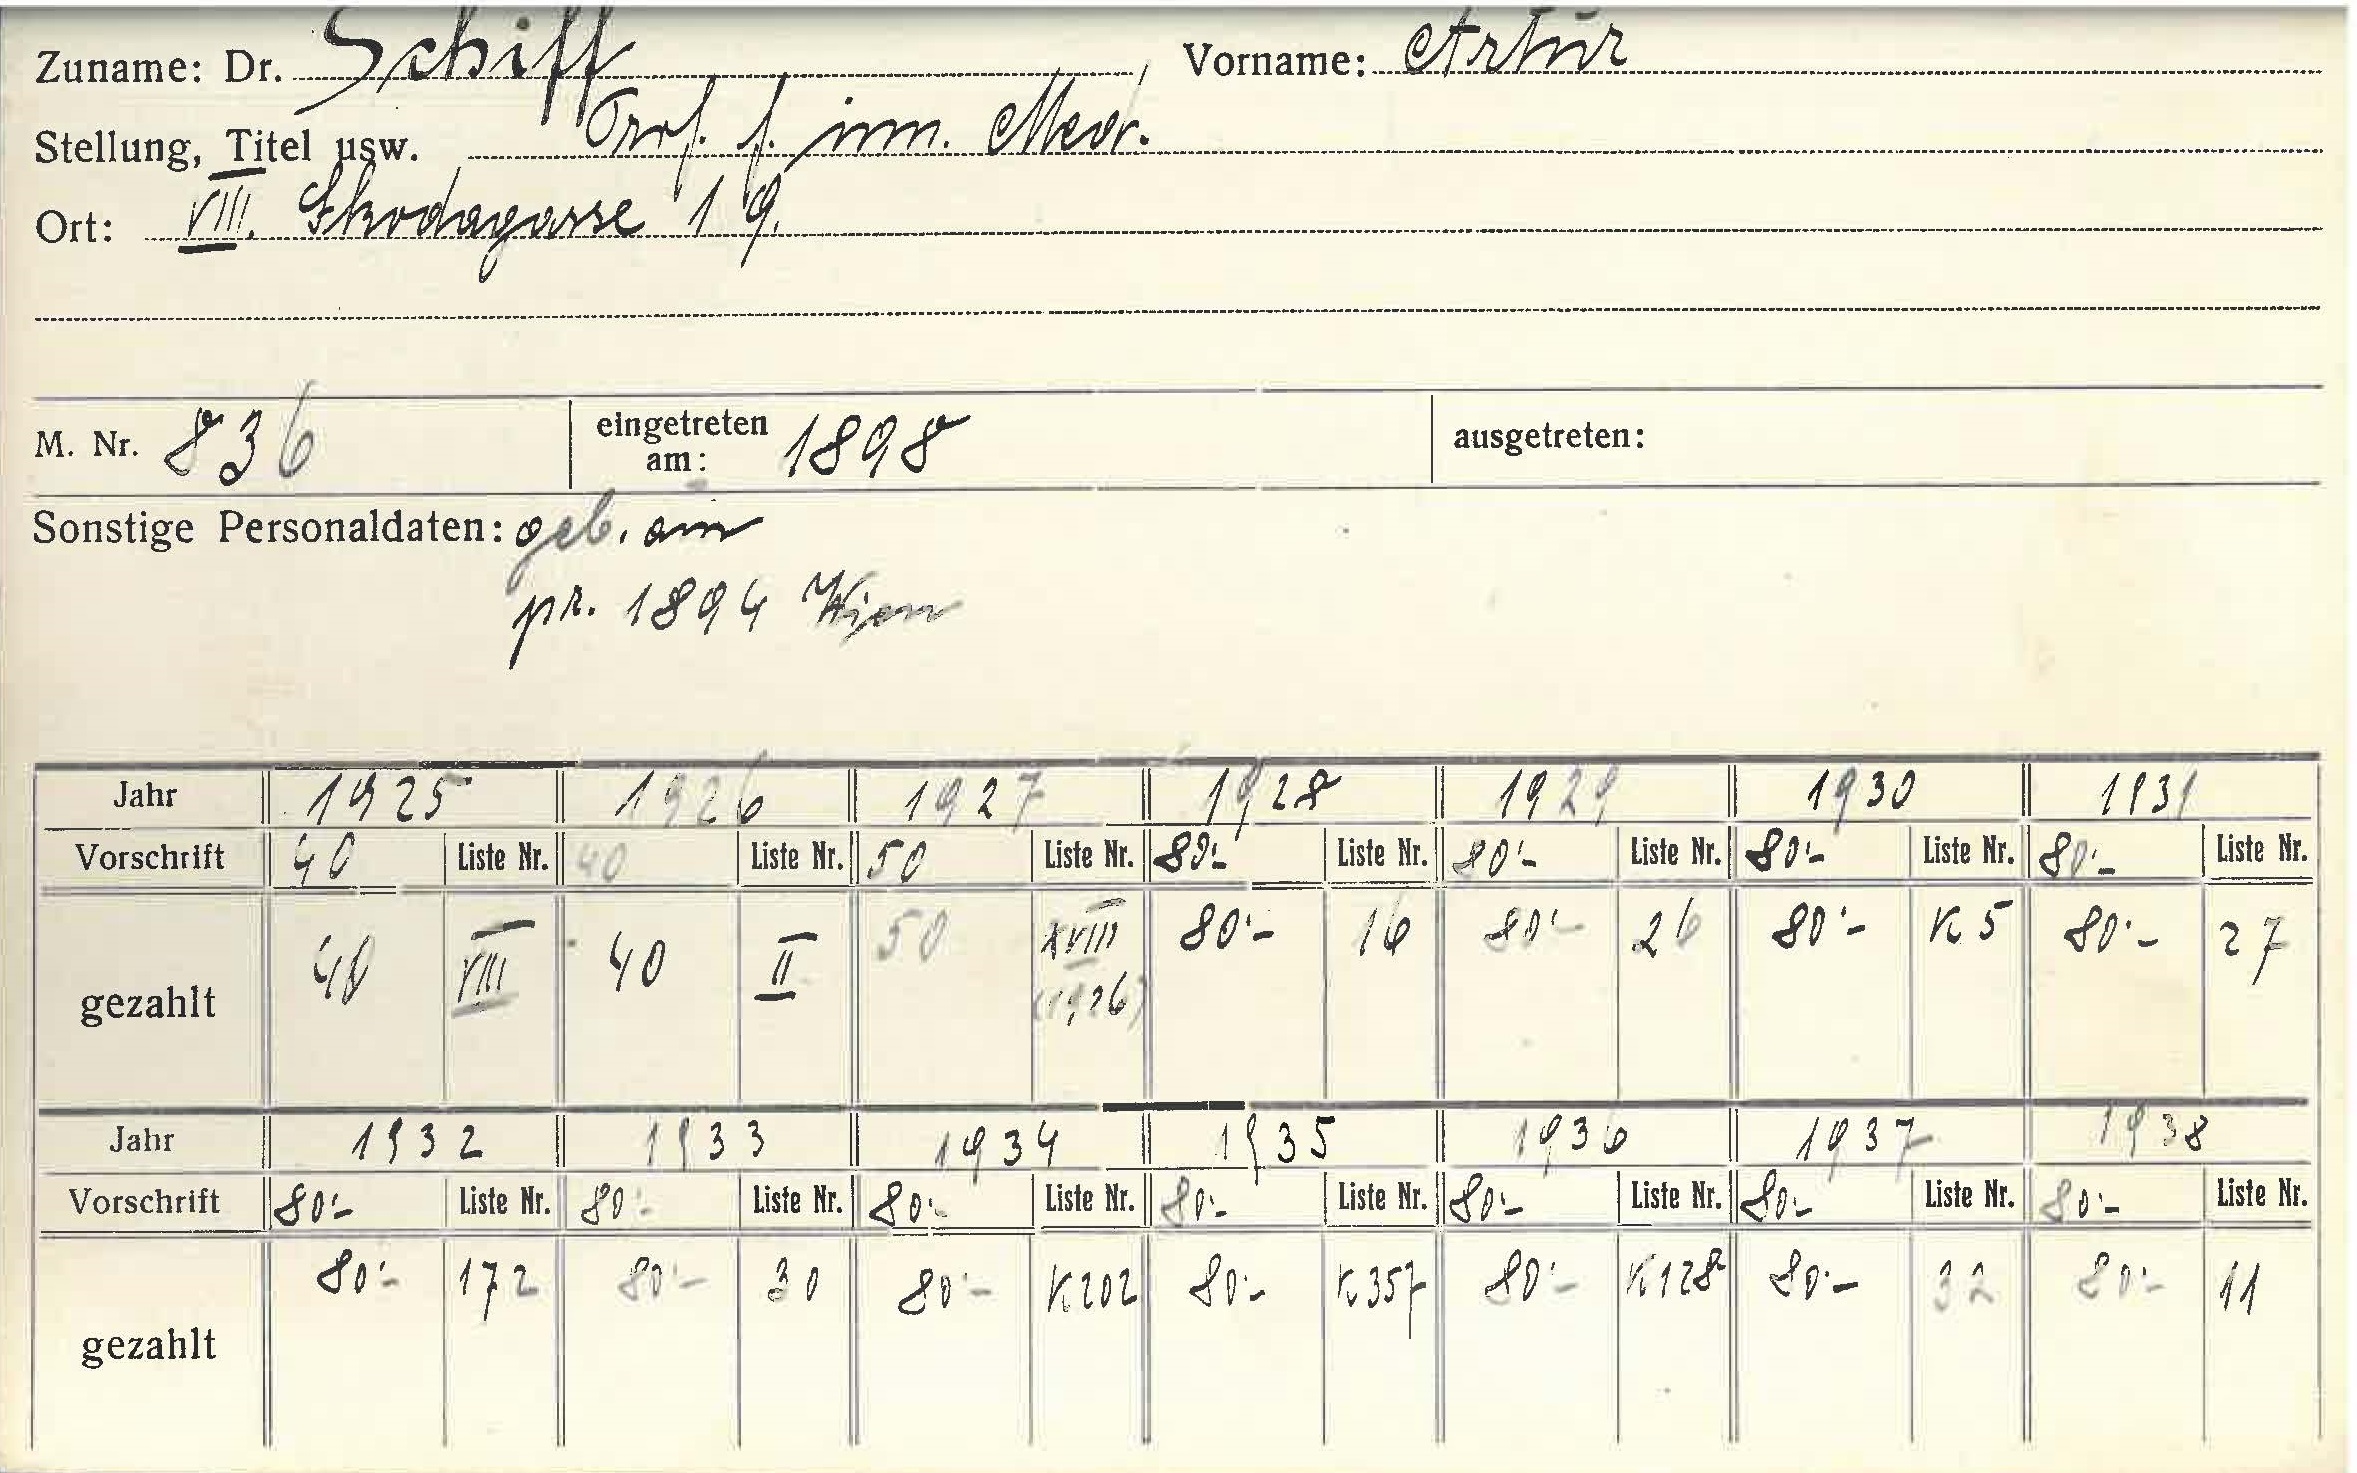 Zuname: Dr. Schiff, Vorname: Artur
Stellung, Titel usw. Prof. f. inn. Med.
Ort: VIII. Skodagasse 19.
M. Nr. 836 eingetreten am: 1898 ausgetreten:
Sonstige Personaldaten: geb. am
pr. 1894 Wien
Jahr 1925 1926 1927 1928 1929 1930 1931
Vorschrift 40 Liste Nr. 40 Liste Nr. 50 Liste Nr. 80·- Liste Nr. 80·- Liste Nr. 80·- Liste Nr. 80·- Liste Nr.
gezahlt 40 VIII 40 II 50 XVIII (1926) 80·- 16 80·- 26 80·- K5 80·- 27
Jahr 1932 1933 1934 1935 1936 1937 1938
Vorschrift 80·- Liste Nr. 80·- Liste Nr. 80·- Liste Nr. 80·- Liste Nr. 80·- Liste Nr. 80·- Liste Nr. 80·- Liste Nr.
gezahlt 80·- 172 80·- 30 80·- K202 80·- K357 80·- K128 80·- 32 80·- 11